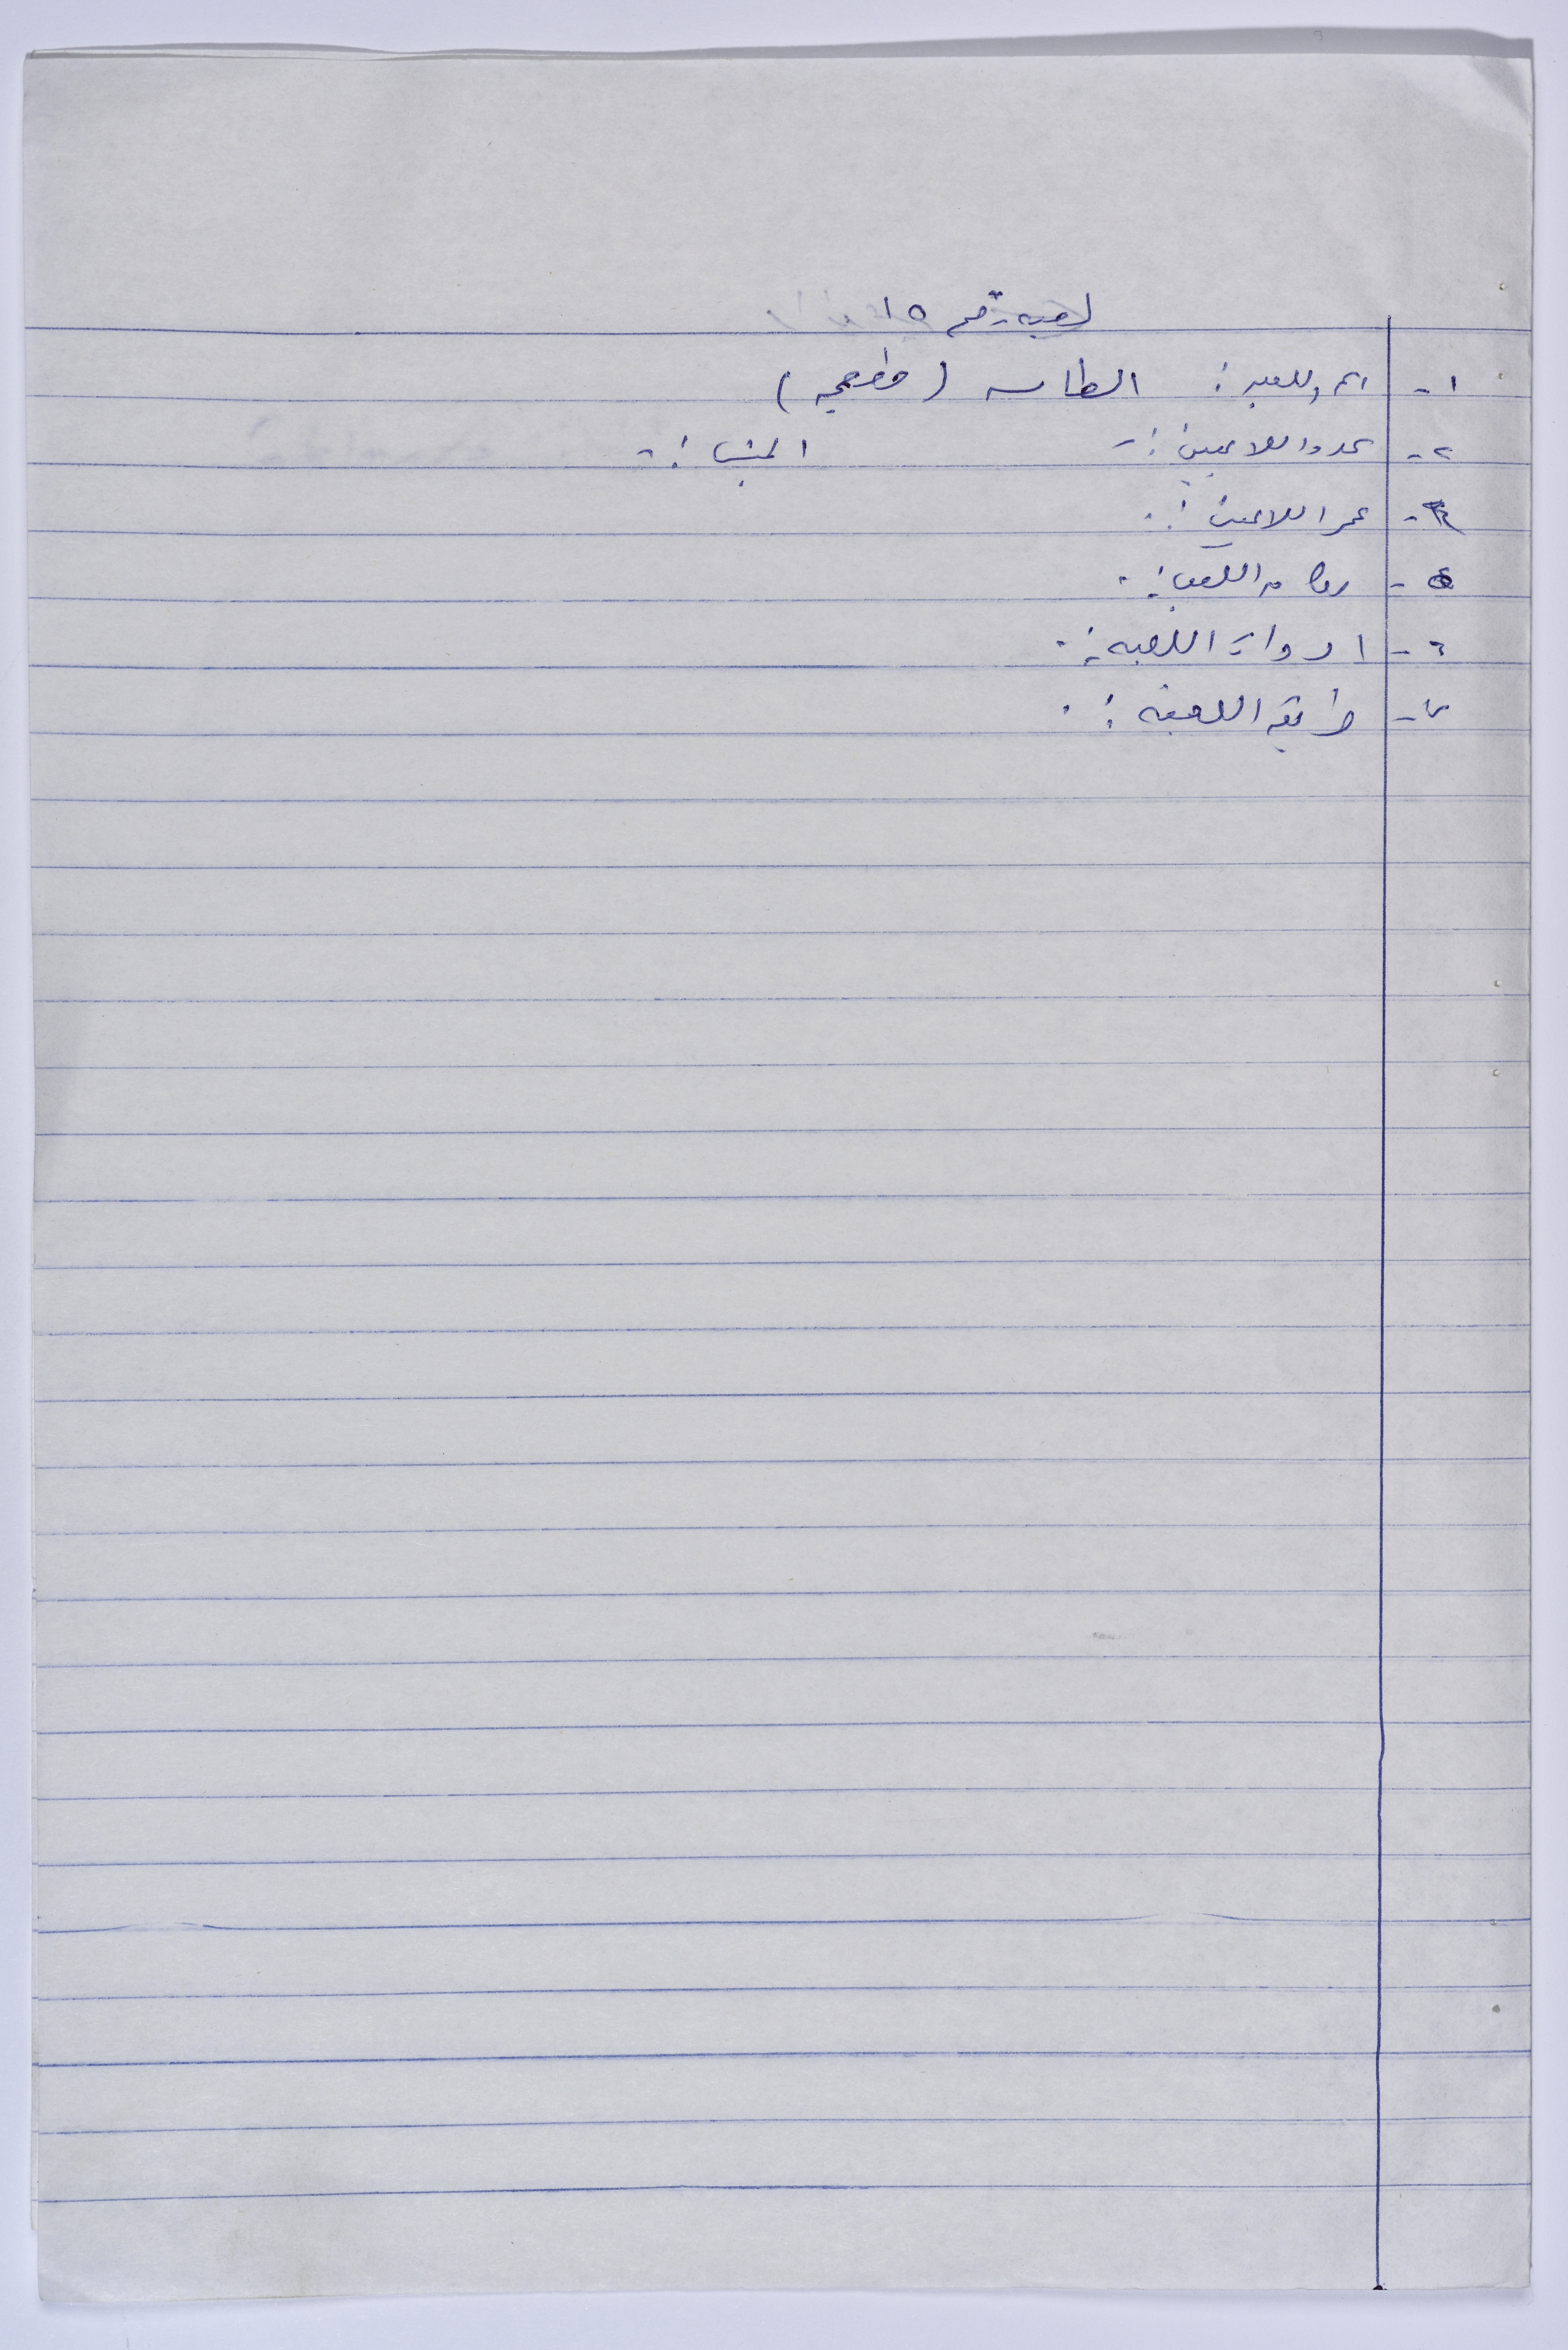 لعبه رقم ١٥
١- اسم اللعبه : الطاسه ( )
٢- عدد اللاعبين :- الجنس :-
٣- عمر اللاعبين :-
٥- مكان اللعب :-
٦- ادوات اللعبه :-
٧- طريقه اللعبه :-